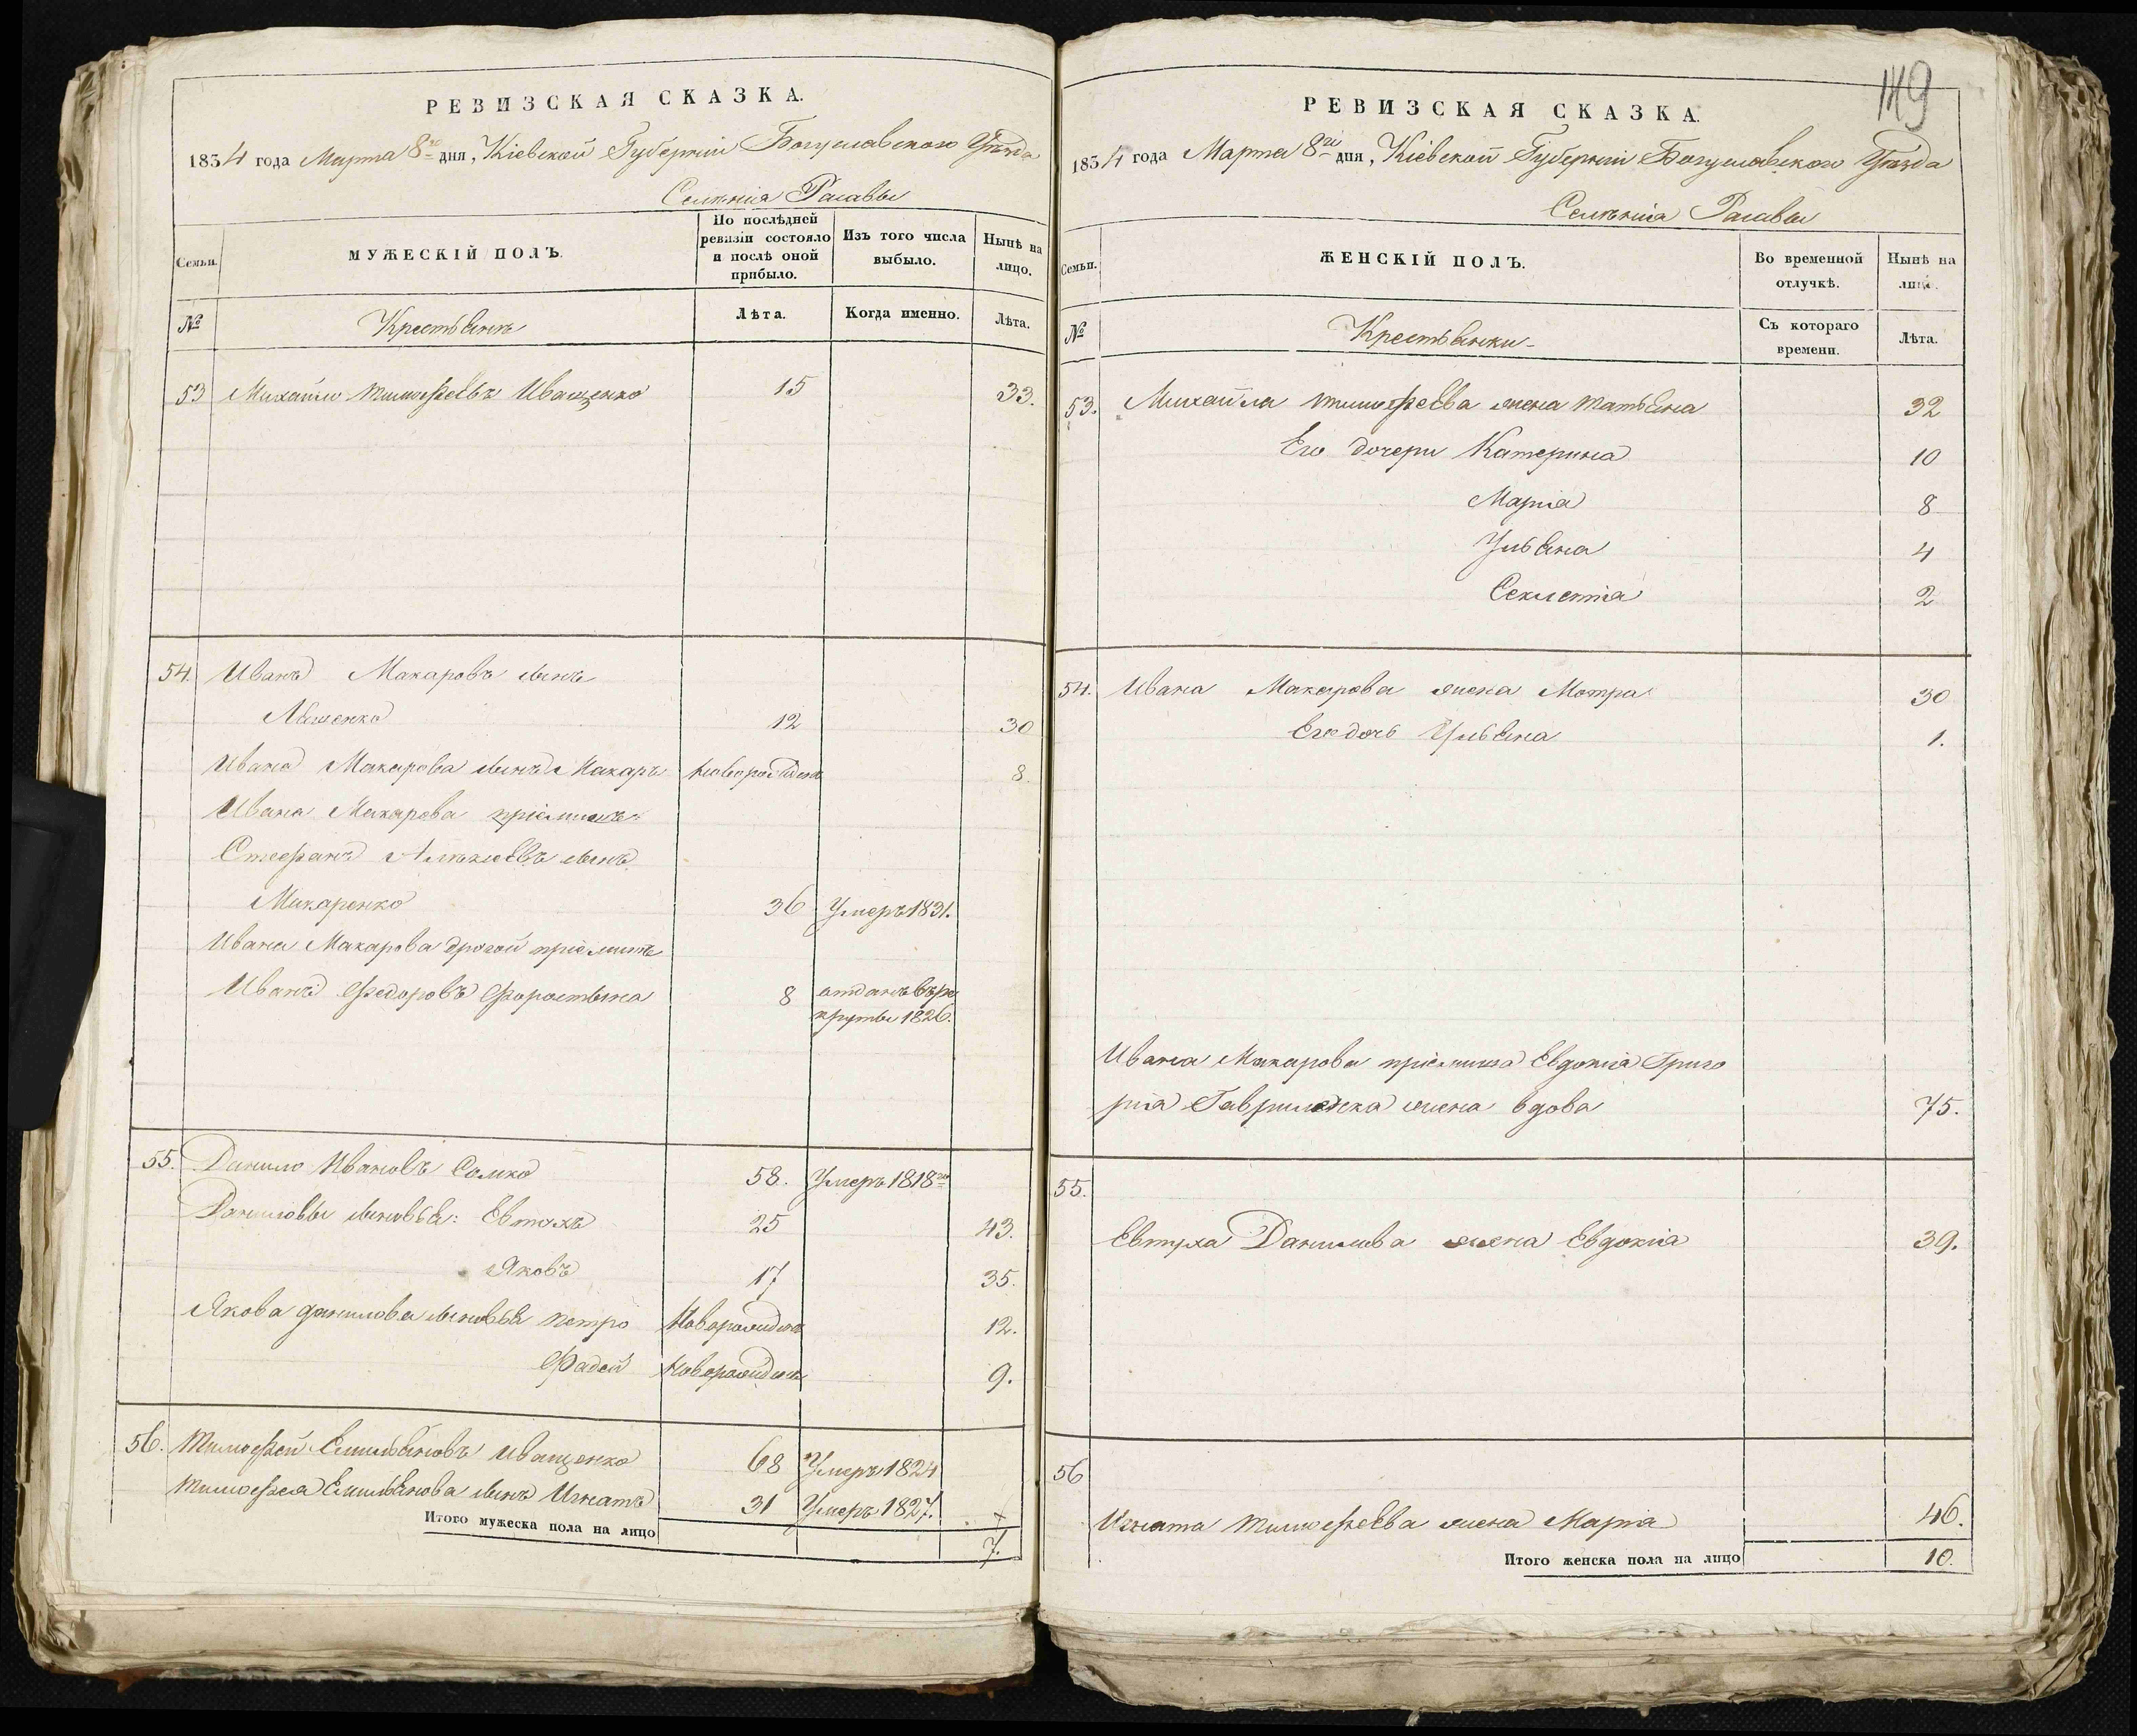 РЕВИЗСКАЯ СКАЗКА.
1834 года Марта 8го дня, Кіевской Губерніи Богуславского Уѣзда
Селѣнія Расавы
Семьи.
МУЖЕСКІЙ ПОЛЪ.
По послѣдней ревизіи состояло и послѣ оной прибыло.
Изъ того числа выбыло.
Нынѣ на лицо.
№
Крестьянъ
Лѣта.
Когда именно.
Лѣта.
53 Михайло тимофеевъ Иващенко 15 33.
54. Иванъ Макаровъ сынъ
12 30
Ивана Макарова сынъ Макаръ новорожденъ 8.
Ивана Макарова пріемишъ:
Стефанъ Алѣксеевъ сынъ
Макаренко 36 Умеръ 1831.
Ивана Макарова другой пріемишъ
Иванъ Федоровъ Форостына 8 отданъ въ ре
круты 1826.
55. Данило Ивановъ Сомко 58. Умеръ 1818го
Даниловы сыновья: Евтухъ 25 43.
Яковъ 17 35.
Якова данилова сыновья петро Новорожденъ 12.
Фадей Новорожденъ 9.
56. Тимофей Емильяновъ Иващенко 68 Умеръ 1824
Тимофея Емильянова сынъ Игнатъ 31 Умеръ 1827.
Итого мужеска пола на лицо 7.
149
РЕВИЗСКАЯ СКАЗКА.
1834 года Марта 8го дня, Кіевской Губерніи Богуславского Уѣзда
Селѣнія Расавы
Семьи.
ЖЕНСКІЙ ПОЛЪ.
Во временной отлучкѣ.
Нынѣ на лицо.
№
Крестьянки
Съ котораго времени.
Лѣта.
53. Михайла тимофеева жена татьяна 32
Его дочери Катерина 10
Марія 8
Ульяна 4
Секлетія 2
54. Ивана Макарова жена Мотра 30
Его дочь Ульяна 1.
Ивана Макарова пріемища Евдокія Григо
рія Гавриленка жена вдова 75.
55.
Евтуха Данилова жена Евдокія 39.
56
Игната тимофеева жена Марія 46.
Итого женска пола на лицо 10.